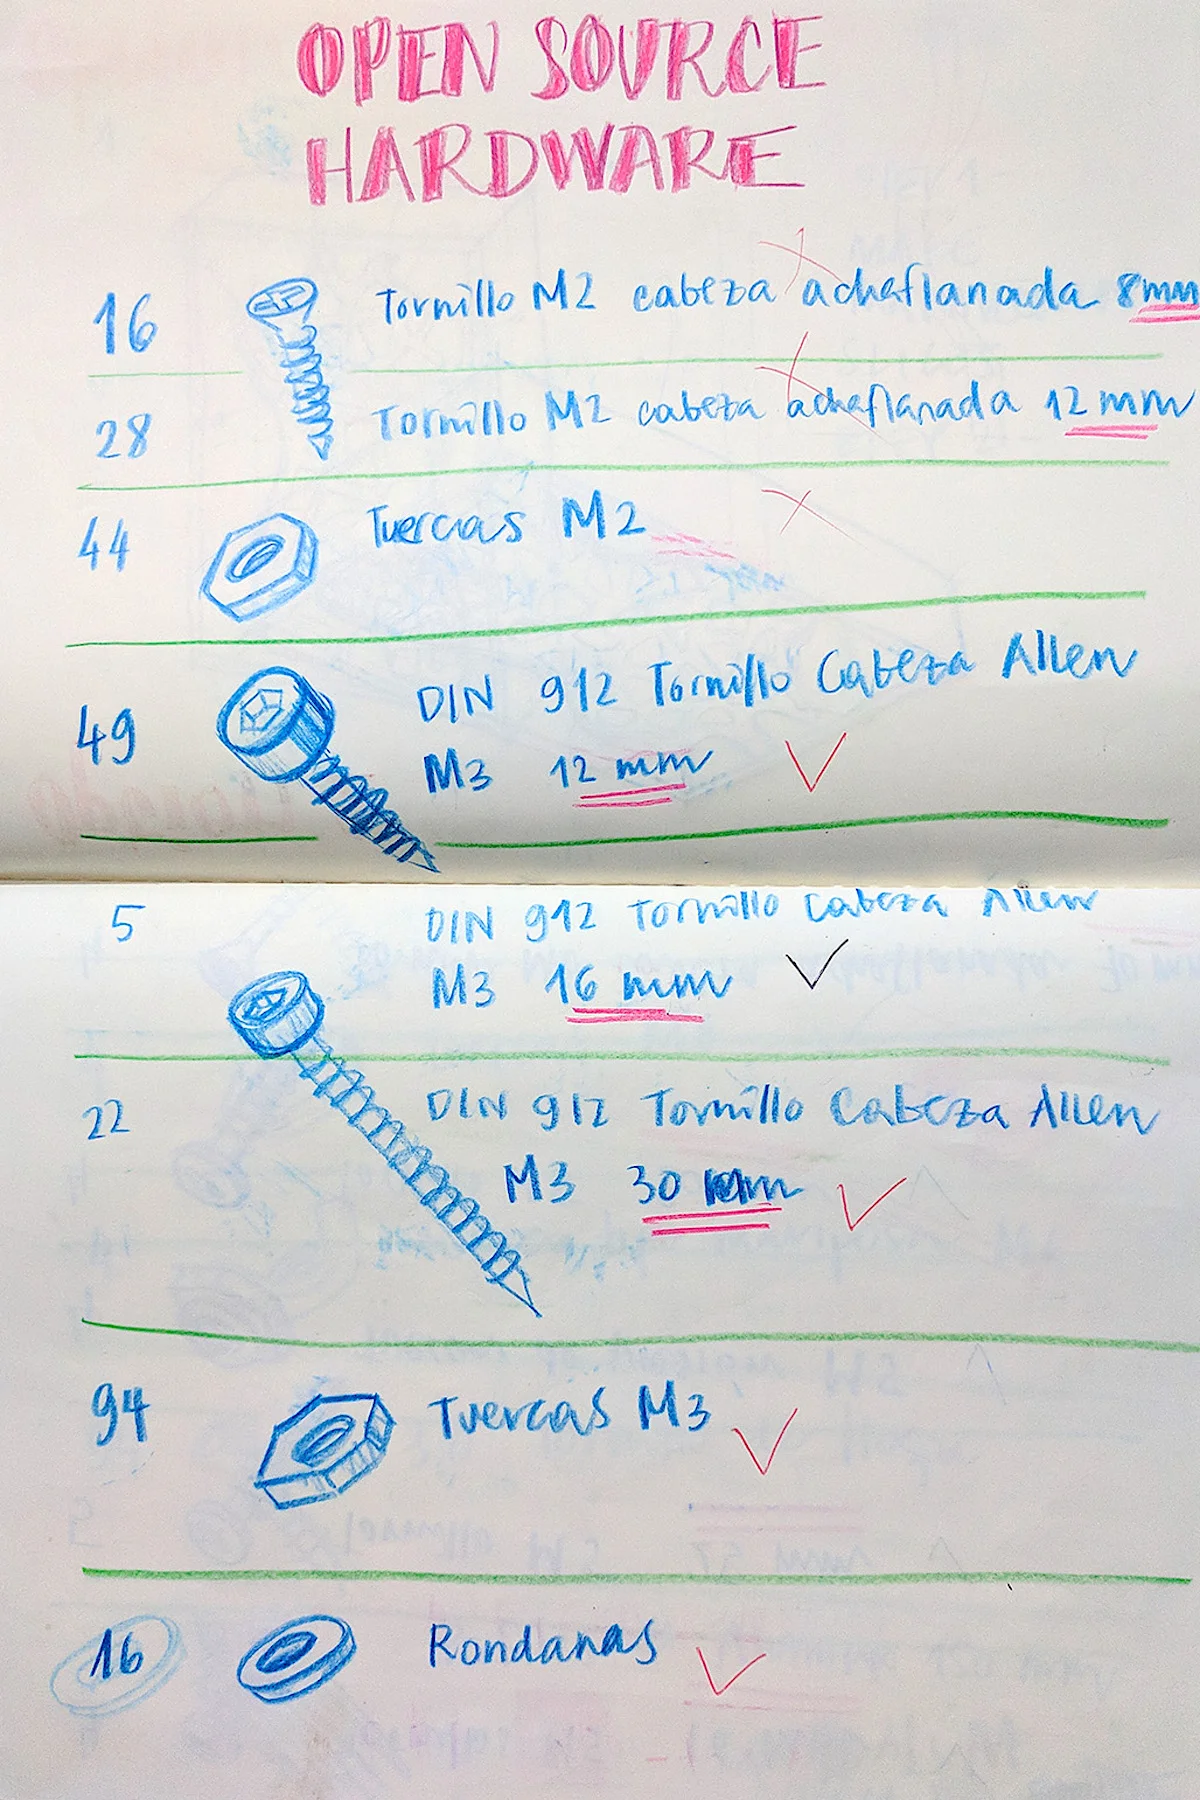 OPEN SOURCE
HARDWARE
16 Tornillo M2 cabeza achaflanada 8mm
28 Tornillo M2 cabeza achaflanada 12 mm
44 Tuercas M2
49 DIN 912 Tornillo Cabeza Allen
M3 12 mm
5 DIN 912 Tornillo Cabeza Allen
M3 16 mm
22 DIN 912 Tornillo Cabeza Allen
M3 30 mm
94 Tuercas M3
16 Rondanas